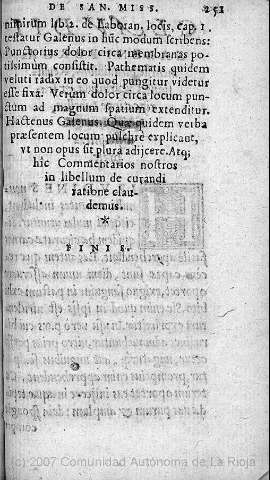 DE SAN. MISS. 251
nimirum lib. 2. de Laboran. locis, cap. 1.
testatur Galenus in hũc modum scribens:
Punctorius dolor circa membranas po-
tissimum consistit. Pathematis quidem
veluti radix in eo quod pungitur videtur
esse fixa. Verum dolor circa locum pun-
ctum ad magnum spatium extenditur.
Hactenus Galenus. Quæ quidem verba
præsentem locum pulchre explicant,
vt non opus sit plura adijcere. Atq;
hic Commentarios nostros
in libellum de curandi
ratione clau-
demus.
*
FINIS.
(c) 2007 Comunidad Autónoma de La Rioja